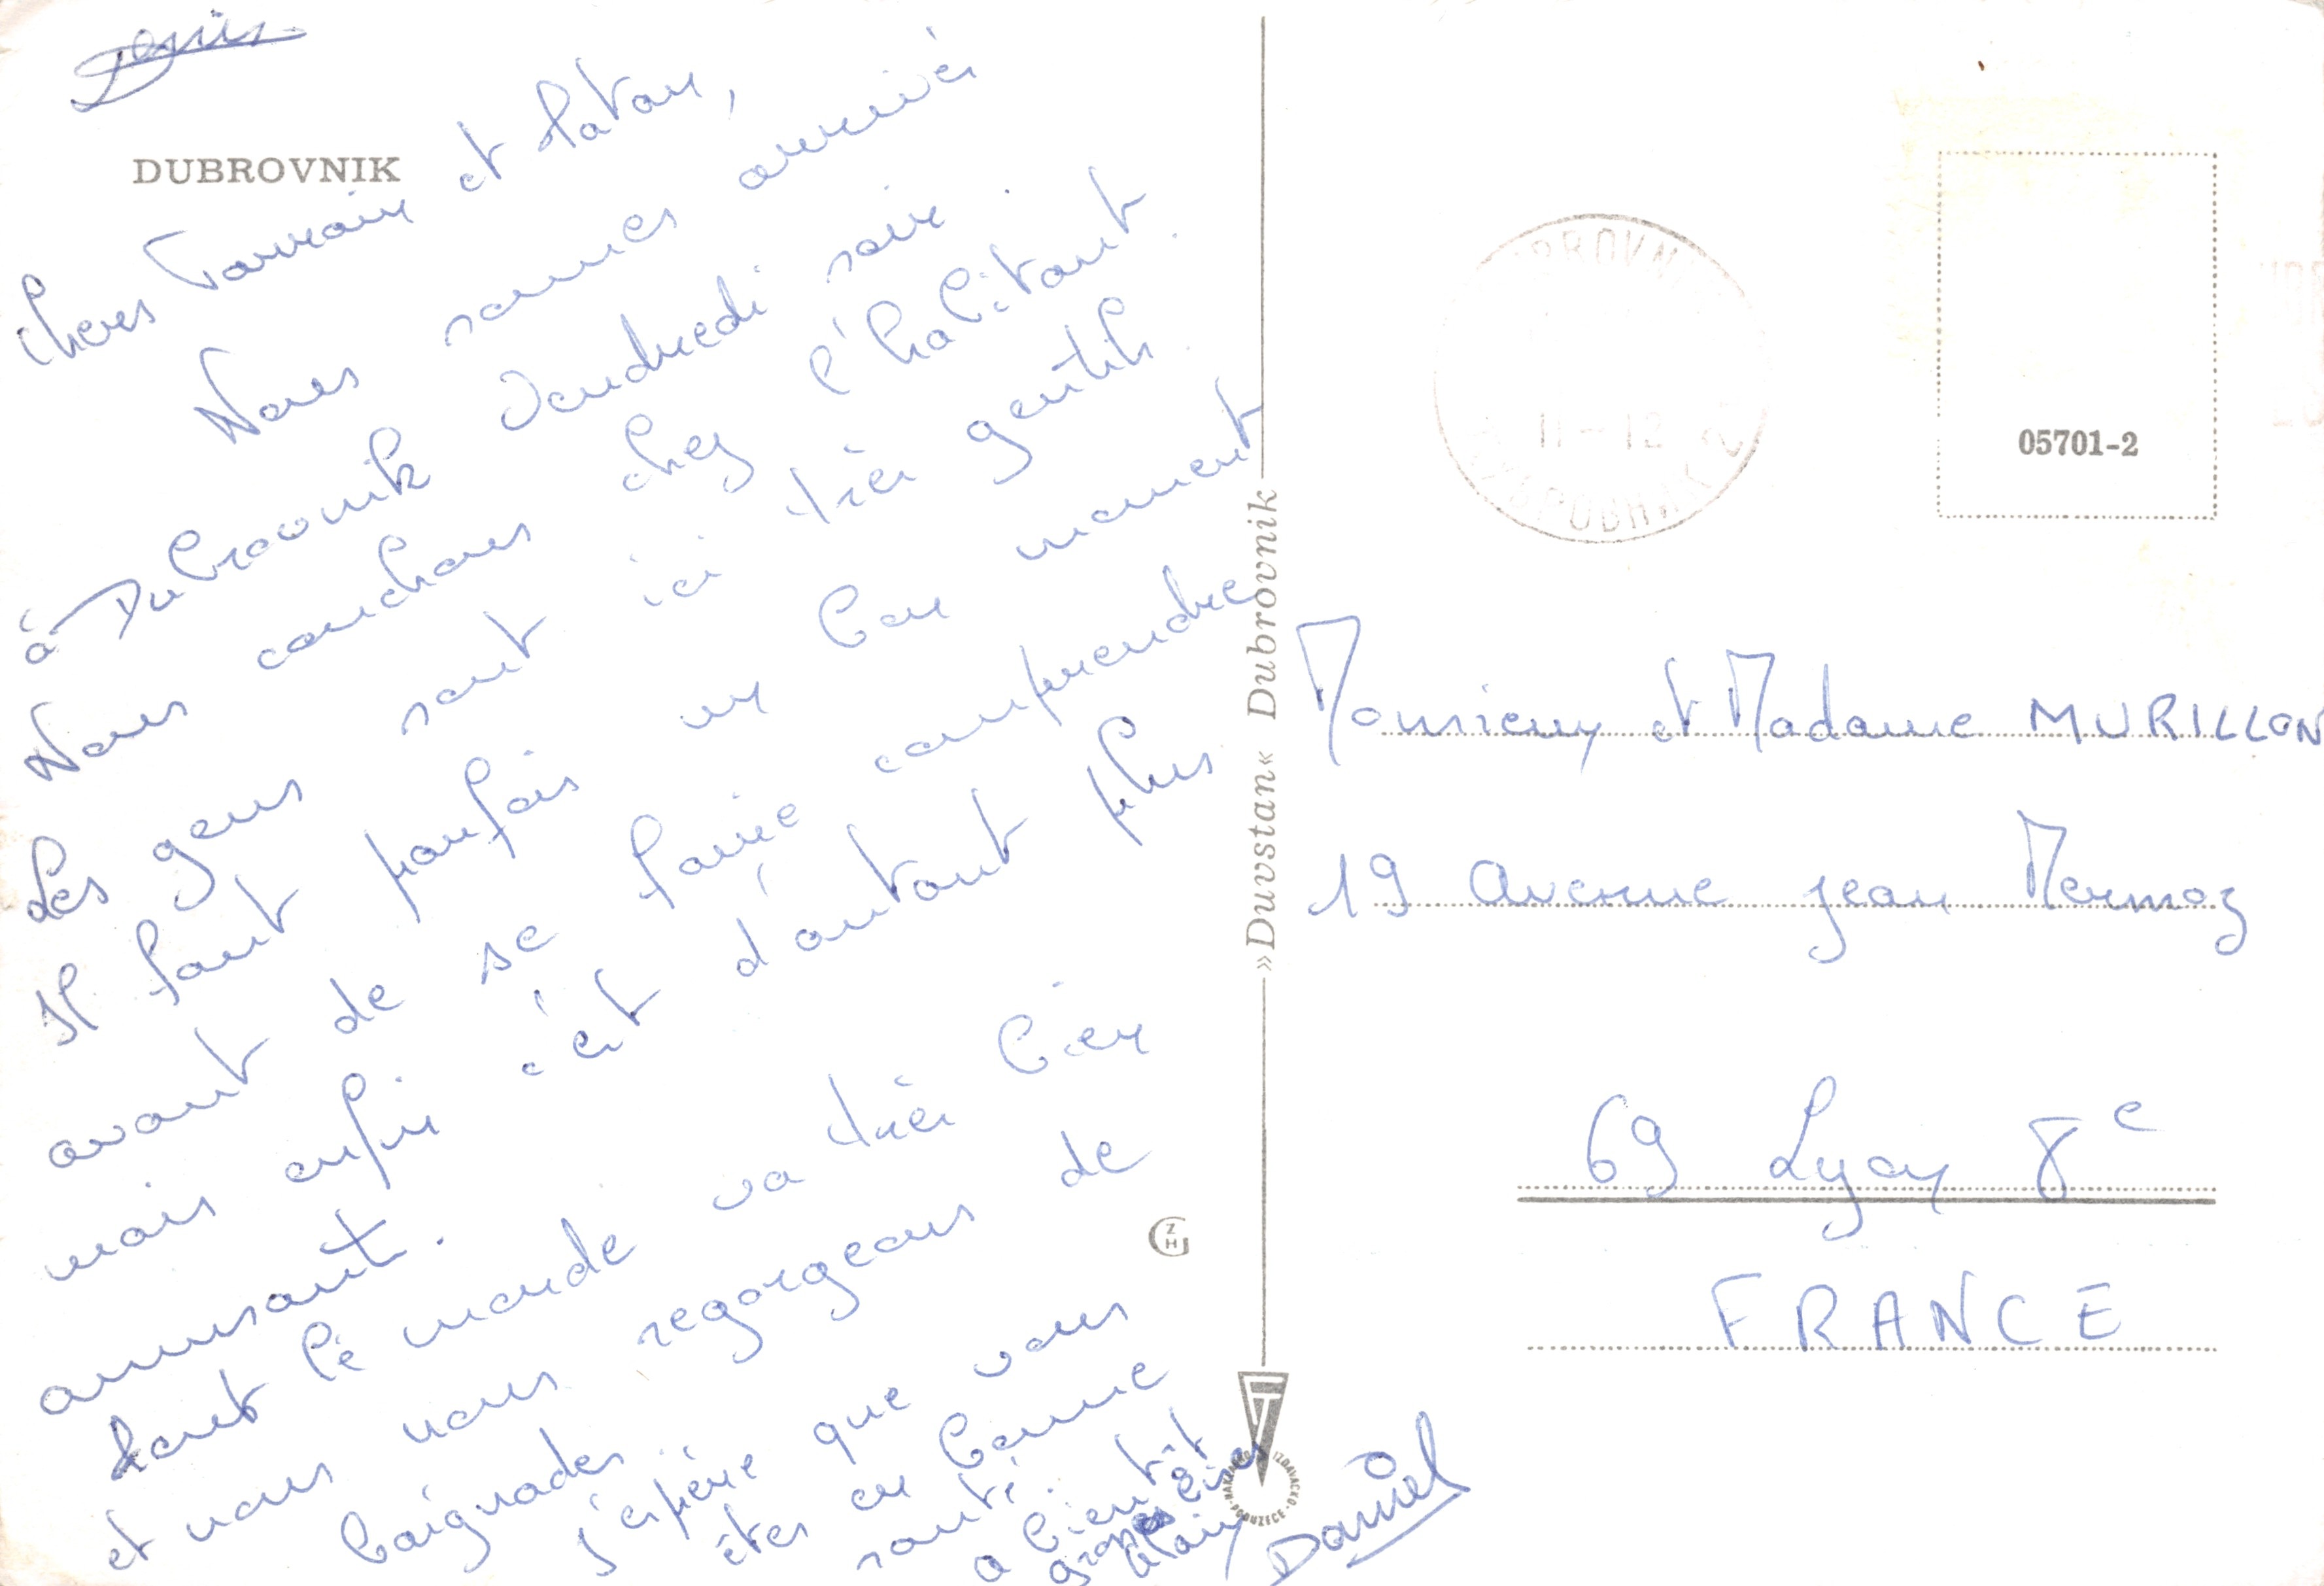 Denis
DUBROVNIK
Chers Parrain et Tatan,
Nous sommes arrivés
à Dubrovnik Vendredi soir.
Nous couchons chez l'habitant.
Les gens sont ici très gentils.
Il faut parfois un bon moment
avant de se faire comprendre
mais enfin c'est d'autant plus
amusant.
Tout le monde va très bien
et nous nous regorgeons de
baignades.
J'espère que vous
êtes en bonne
santé.
à bientôt
grosses bises
Alain
Daniel
»Duvstan« Dubrovnik
GZH
IZDAVAČKO
05701-2
11-12
Monsieur et Madame MURILLON
19 Avenue Jean Mermoz
69 Lyon 8e
FRANCE